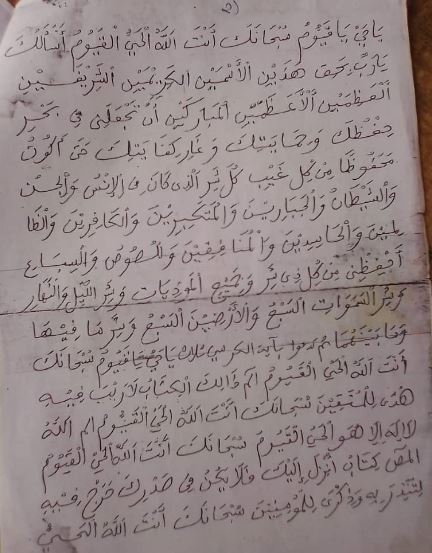 (2
يَاحَيُّ يَا قَيُّومُ سُبْحَانَكَ أَنْتَ اللَّهُ الْحَيُّ الْقَيُّومُ أَسْأَلُكَ
يَارَبِّ بِحَقِّ هَذَيْنِ الْأَسْمَيْنِ الْكَرِيمَيْنِ الشَّرِيفَيْنِ
الْعَظِمَيْنِ الْأَعْظَمَيْنِ الْمُبَارَكَيْنِ أَنْ تَجْعَلَنِي فِي بَحْرِ
حِفْظِكَ وَحِمَايَتِكَ وَ حَتَّى أَكُونَ
مَحْفُوظًا مِنْ كُلِّ كُلِّ شَرِّ الَّذِى كَانَ مِنَ الْإِنْسِ وَالْجِنِّ
وَالشَّيْطَانِ وَالْجَبَّارِينَ وَالْمُتَكَبِّرِينَ وَالْكَافِرِينَ وَالْظَّا
لِمِينَ وَالْحَاسِدِينَ وَالْمُنَافِقِينَ وَاللُّصُوصِ وَالسِّبَاعِ
أَحْفِظْنِى مِنْ كُلِّ ذِى شَرٍّ وَجَمِيعِ الْمُوذِيَاتِ وَشَرِّ اللَّيْلِ وَالنَّهَارِ
وَشَرِّ السَّمَوَاتِ السَّبْعِ وَالْأَرَضِينَ السَّبْعِ وَشَرِّ مَا فِيهَا
وَمَا بَيْنَهُمَا بآية الكرسي ثلاث يَاحَيُّ يَاقَيُّومُ سُبْحَانَكَ
أَنْتَ اللَّهُ الْحَيُّ الْقَيُّومُ الم ذَالِكَ الْكِتَابُ لَارَيْبَ فِيْهِ
هُدًى لِلْمُتَّقِينَ سُبْحَانَكَ أَنْتَ اللَّهُ الْحَيُّ الْقَيُّومُ الم اللَّهُ
لَاإِلَهَ إِلَّا هُوَ الْحَيُّ الْقَيُّومُ سُبْحَانَكَ أَنْتَ اللَّهُ الْحَيُّ الْقَيُّومُ
المص كِتَابٌ أُنْزِلَ إِلَيْكَ فَلَا يَكُنْ فِى صَدْرِكَ حَرَجٌ فِيْهِ
لِتُنْذِرَ بِهِ وَذِكْرَى لِلْمُومِنِينَ سُبْحَانَكَ أَنْتَ اللَّهُ الْحَيُّ